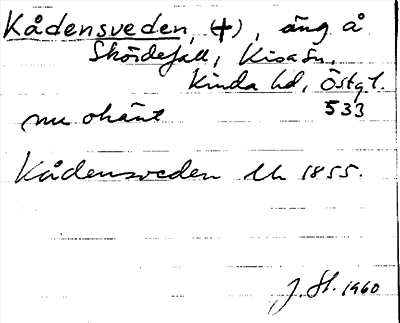 Kådensveden, (+), äng å
Skördefall, Kisa sn,
Kinda hd, Östgl.
533
nu okänt
Kådensveden Uk 1855.
J. St. 1960